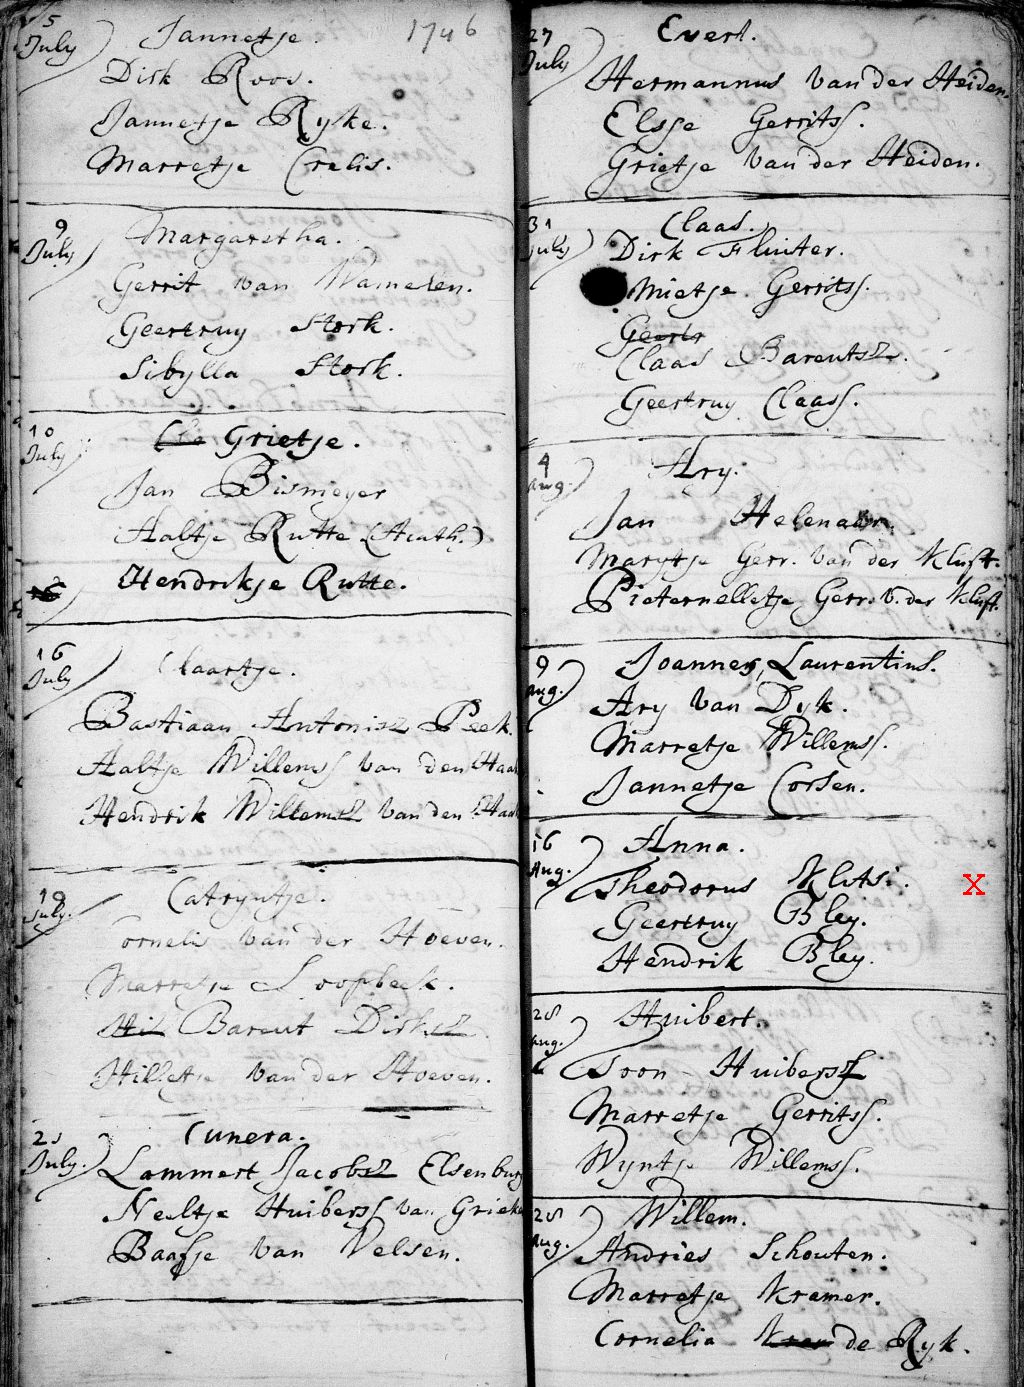 5 July Jannetje. 1746
Dirk Roos.
Jannetje Ryke.
Marretje Crelis.
9 July Margaretha.
Gerrit van Wamelen.
Geertruy Stork.
Sibylla Stork.
10 July Cla Grietje.
Jan Bismeyer
Aaltje Rutte (Auth.)
Hendrikje Rutte.
16 July Claartje.
Bastiaan Antonisz Peek.
Aaltje Willemsz van den Haa
Hendrik Willemsz van den Haa
19 July. Catryntje.
Cornelis van der Hoeven.
Marretje Loopbeek.
Hil Barent Dirksz.
Hilletje van der Hoeven.
25 July. Cunera.
Lammert Jacobsz Elsenburg
Neeltje Huibersz van Grieke
Baafje van Velsen.
27 July Evert.
Hermannus van der Heiden.
Elsje Gerritsz.
Grietje van der Heiden.
31 July Claas.
Dirk Fluiter.
Mietje Gerritsz.
Geertr
Claas Barentsz.
Geertruy Claasz.
4 Aug. Ary.
Jan Helenaar.
Marytje Gerr. van der Kluft.
Pieternelletje Gerr. v. der Kluft.
9 Aug. Joannes, Laurentius.
Ary van Dyk.
Marretje Willemsz.
Jannetje Corsen.
16 Aug. Anna.
Theodorus Klutsi. X
Geertruy Bley.
Hendrik Bley.
28 Aug. Huibert.
Toon Huibersz
Marretje Gerritsz.
Wyntje Willemsz.
28 Aug. Willem.
Andries Schouten.
Marretje Kramer.
Cornelia Kram de Ryk.